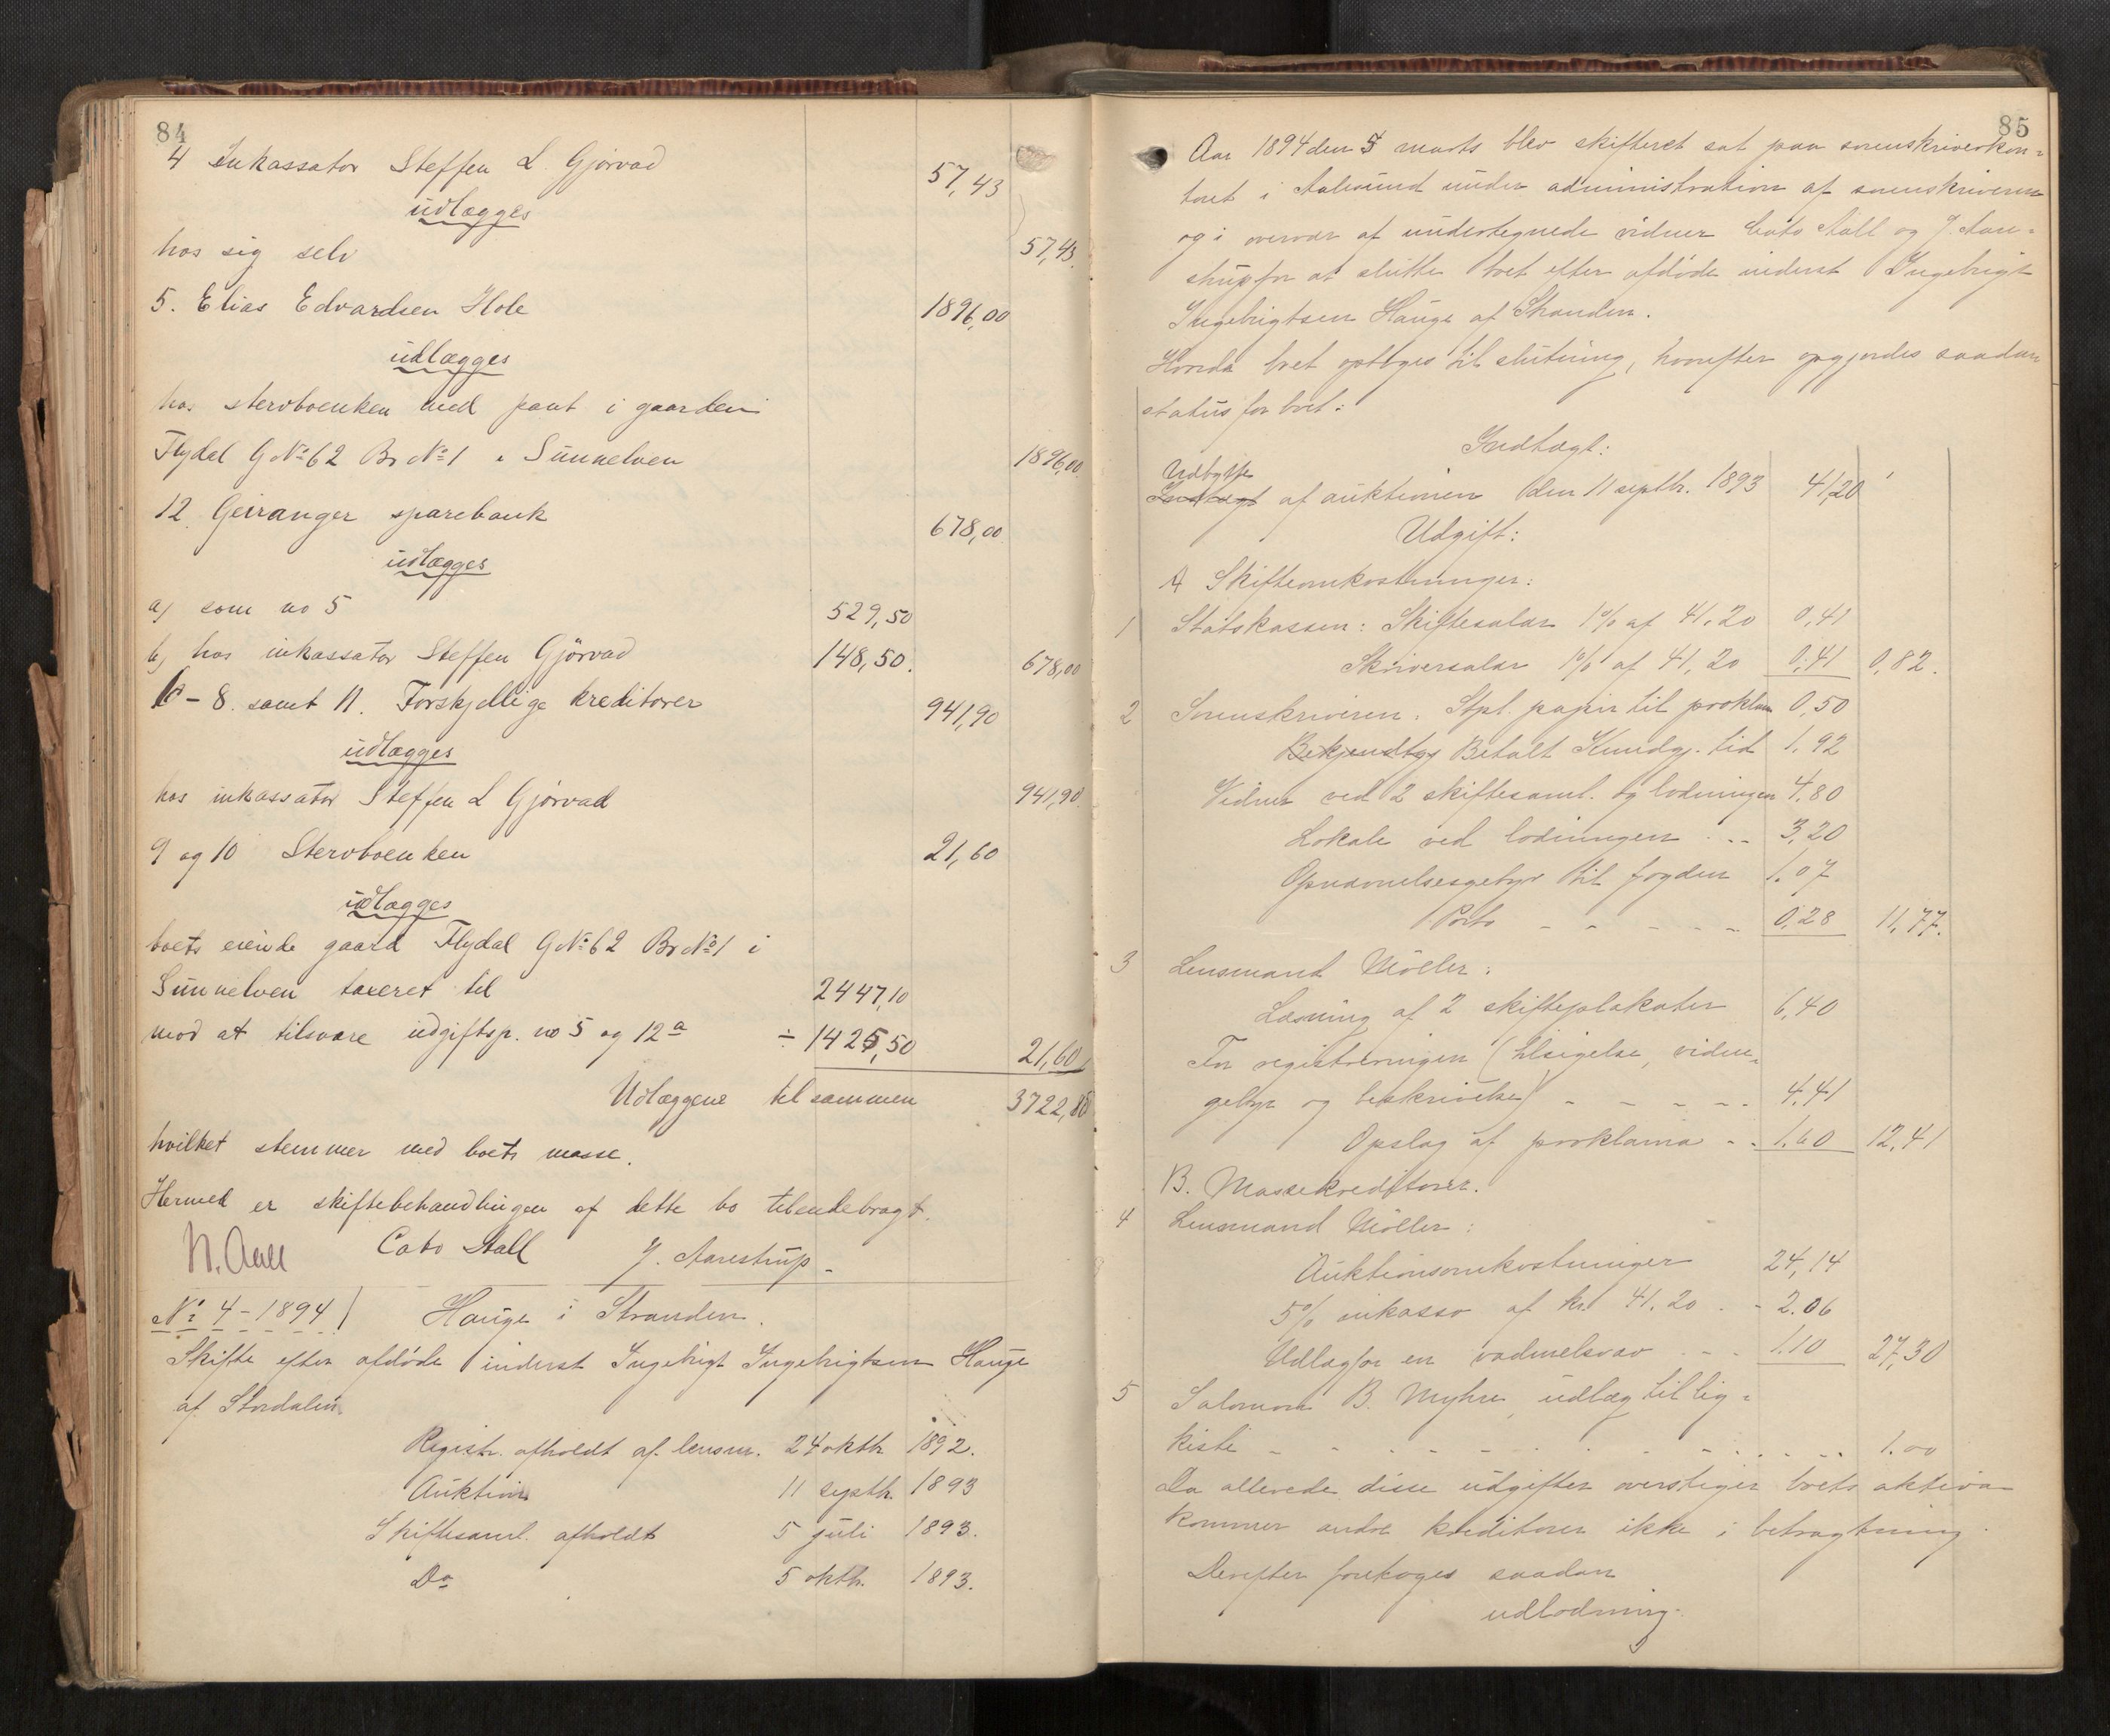 84
4 Inkassator Steffen L. Gjørvad 57,43
udlægges
hos sig selv 57,43.
5. Elias Edvardsen Hole 1896,00
udlægges
hos stervboenken med pant i gaarden
Flydal G.No 62 Br.No 1 i Sunnelven 1896,00
12. Geiranger sparebank 678,00
udlægges
a) som no 5 529,50
b) hos inkassator Steffen Gjørvad 148,50. 678,00
6 - 8. samt 11. Forskjellige kreditorer 941,90
udlægges
hos inkassator Steffen L Gjørvad 941,90.
9 og 10 Stervboenken 21,60
udlægges
boets eiende gaard Flydal G.No 62 Br.No 1 i
Sunnelven taxeret til 2447,10
mod at tilsvare udgiftsp. no 5 og 12a ÷ 1425,50 21,60
Udlæggene tilsammen 3722,88
hvilket stemmer med boets masse.
Hermed er skiftebehandlingen af dette bo tilendebragt.
N. Aall Cato Aall J. Aarestrup
No 4 - 1894) Hauge i Stranden.
Skifte efter afdøde inderst Ingebrigt Ingebrigtsen Hauge
af Stordalen
Registr. afholdt af lensm. 24 oktbr 1892.
Auktion 11 septbr. 1893
Skiftesaml. afholdt 5 juli 1893.
Do 5 oktbr. 1893.
85
Aar 1894 den 5 marts blev skifteret sat paa sorenskriverkon-
toret i Aalesund under administration af sorenskriveren
og i overvær af undertegnede vidner Cato Aall og J. Aare-
strup for at slutte boet efter afdøde inderst Ingebrigt
Ingebrigtsen Hauge af Stranden.
Hvorda boet optoges til slutning, hvorefter opgjordes saadan
status for boet:
Indtægt:
Udbytte
Indtægt af auktionen den 11 septbr. 1893 41,20
Udgift:
A Skifteomkostninger:
1 Statskassen: Skiftesalær 1% af 41,20 0,41
Skriversalær 1% af 41,20 0,41 0,82.
2 Sorenskriveren. Stpl. papir til proklam 0,50
Bekjendtgj Betalt Kundgj. tid 1,92
Vidner ved 2 skiftesaml. og lodningen 4,80
Lokale ved lodningen 3,20
Opnævnelsesgebyr til fogden 1,07
Porto 0,28 11,77.
3 Lensmand Møller:
Læsning af 2 skifteplakater 6,40
For registreringen (tilsigelse, vidne-
gebyr og beskrivelse) 4,41
Opslag af proklama 1,60 12,41
B. Massekreditorer.
4 Lensmand Møller:
Auktionsomkostninger 24,14
5% inkasso af kr. 41.20 2.06
Udlæg for en vadmelsvæv 1.10 27,30
5 Salomon B. Myhre, udlæg til lig-
kiste 1.00
Da allerede disse udgifter overstiger boets aktiva
kommer andre kreditorer ikke i betragtning.
Derefter foretoges saadan
udlodning.